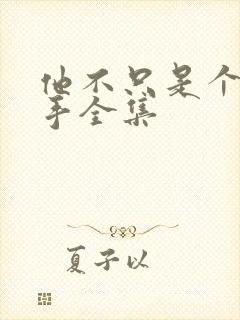 他不只是个
手全集
夏子以